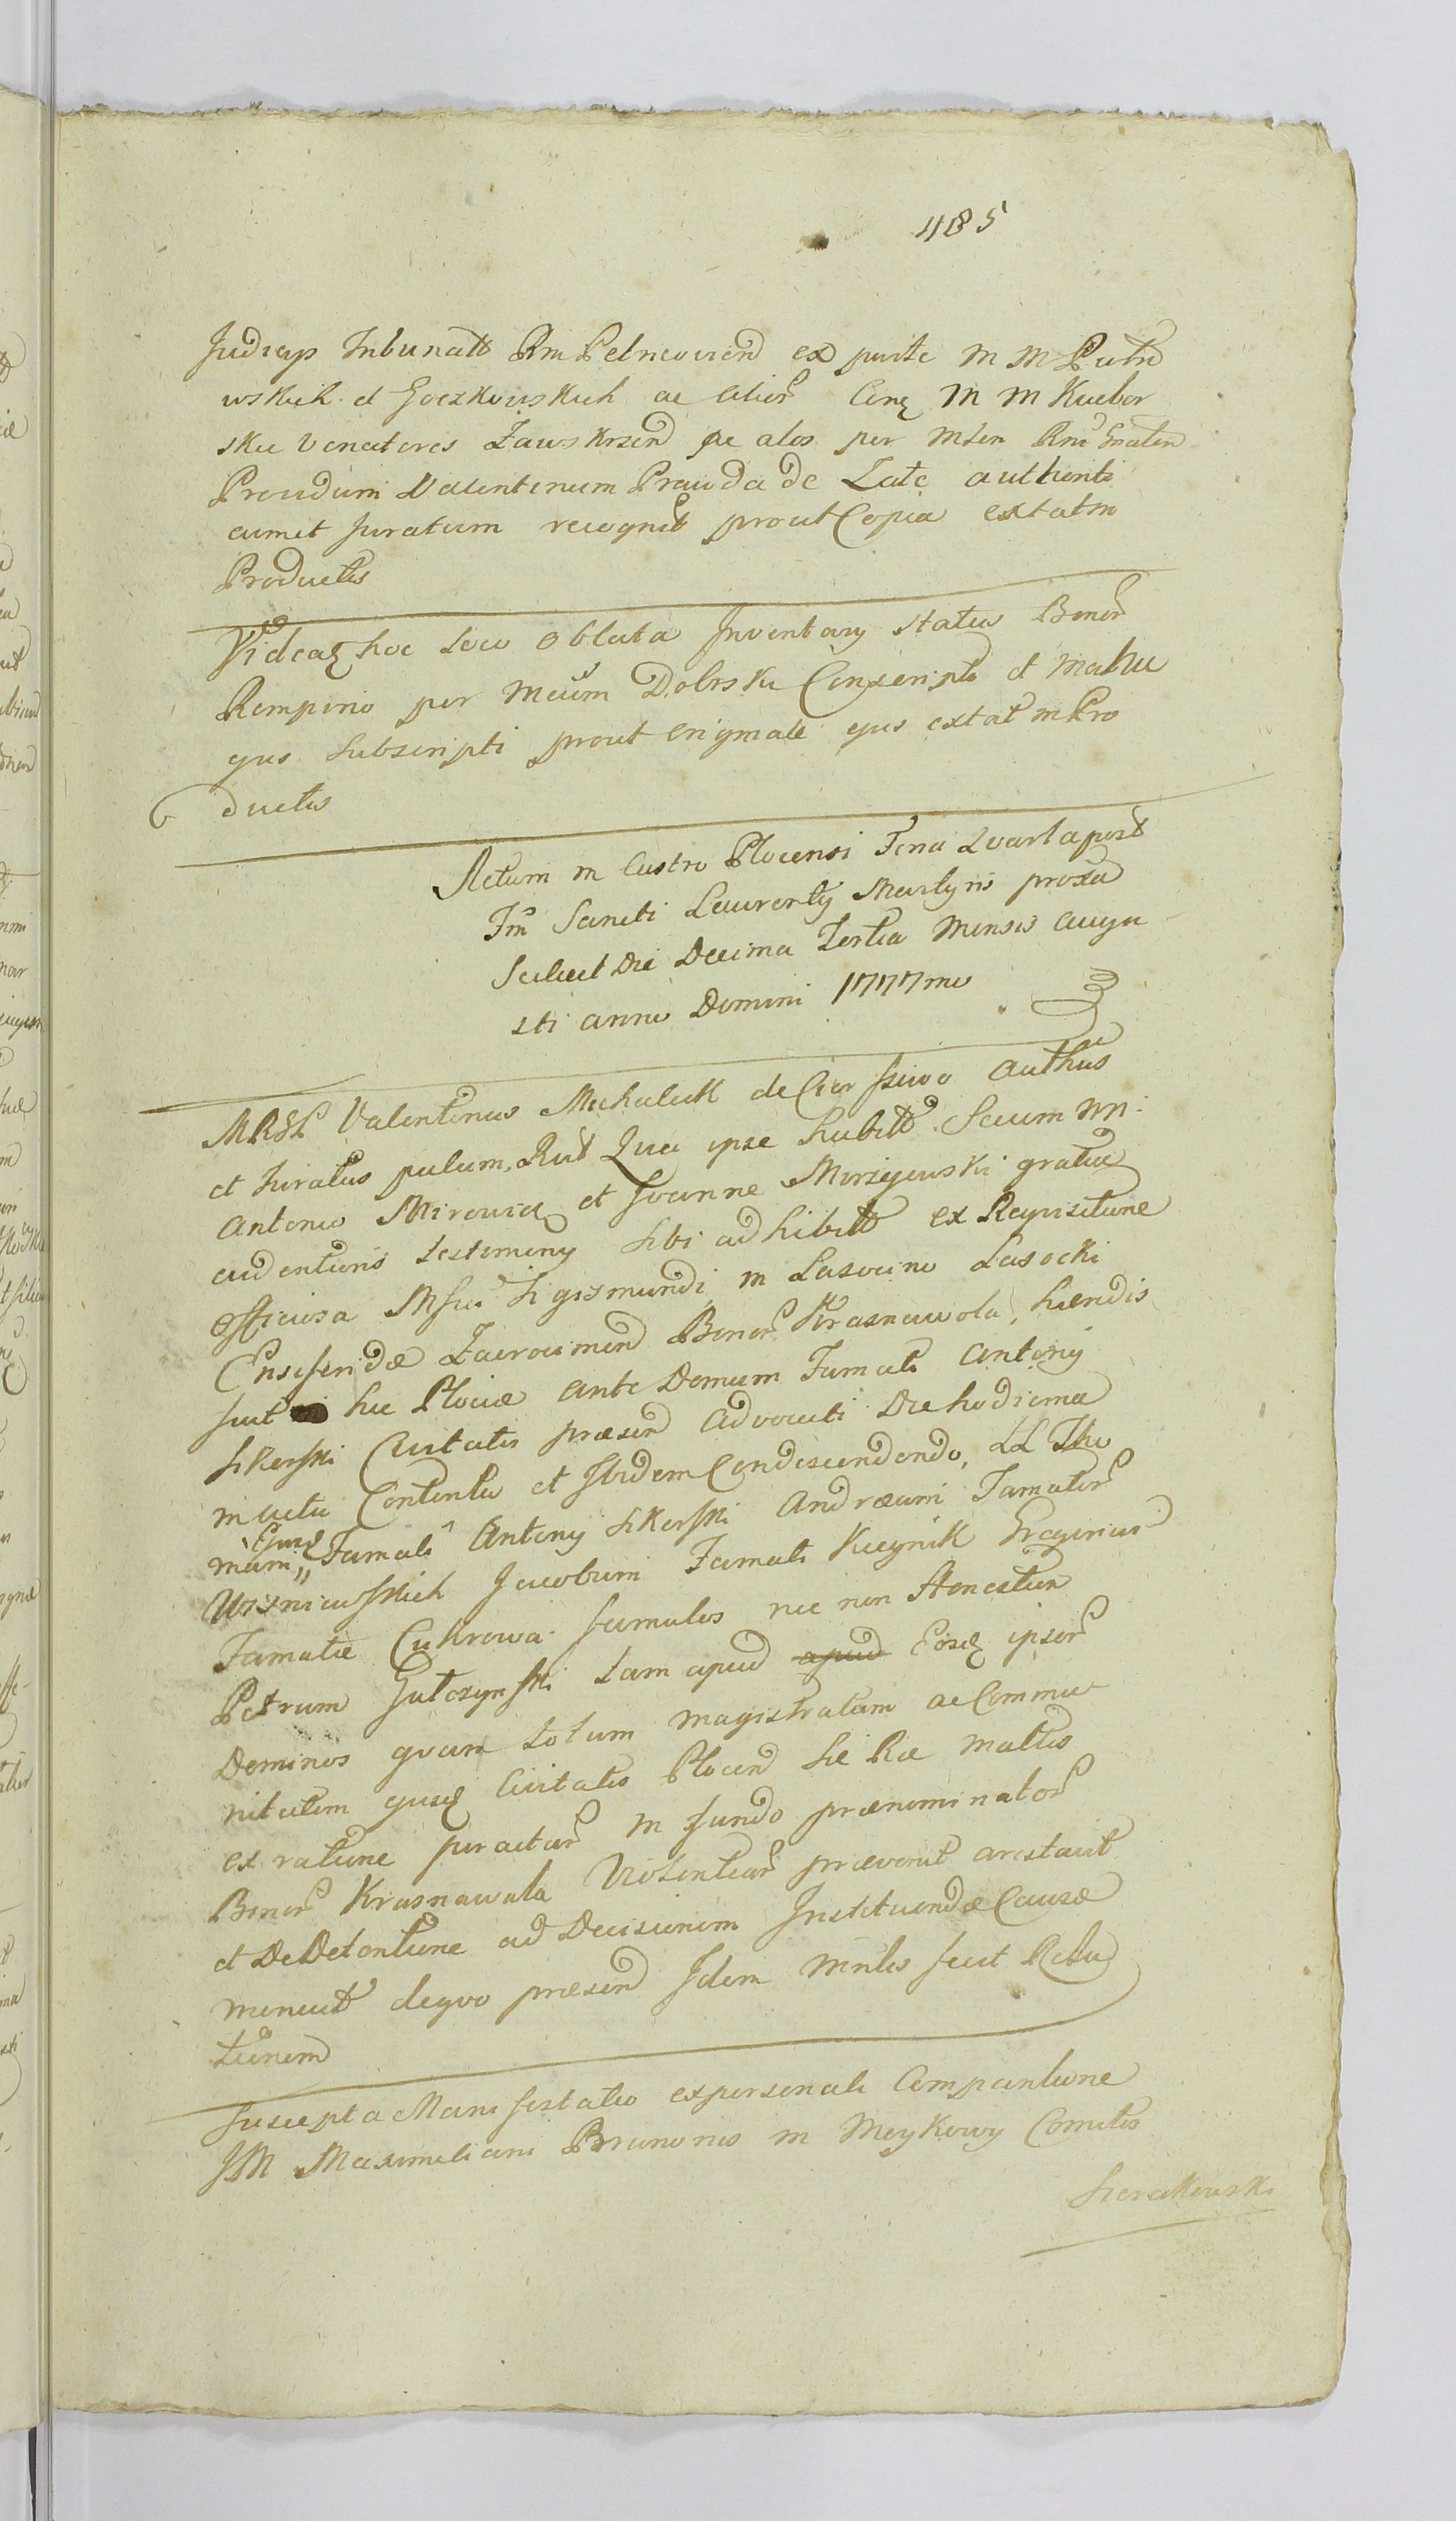 1185
Judicys Tribunatt Rni Petricovien ex parte M M Putno
wskich et Goczkowskich ac alior Cong M M Kuchor
skie Venatores Zawskrzen ac alos per Mten Rni Graten
Providum Valentinum Prawda de Late authenti
cum et Juratum recognit prout Copia extat in
Productis
Videaq hoc loco oblata Inventary status Bonor
Rempino per Mcum Dobrski Conscripto et Manu
ejus Subscripti prout originale ejus extat in Pro
ductis
Actum in Castro Plocensi Feria Quarta post
Fm Sancti Laurenty Martyris proxa
Scilicet Die Decima Tertia Mensis Augu
sti anno Domini 1777mo
MRGL Valentinus Michaluk de Cierssewo Authus
et Juratus palam Rut Qua ipse habitt Secum nn:
Antonio Mirowicz et Joanne Morzyewski gratia
evidentioris testimony sibi adhibitt ex Requisitione
officiosa Msci Sigismundi in Lasocino Lasocki
Ensiferidæ Zacrocimen Bonor Krasnawola, hæredis
fuit hic Plociæ ante Domum Famati Antony
Sikorski Civitatis præsen Advocati Die hodierna
in actu Contenta et Ibidem Condescendendo, LL Tho
mam, Ejusq Famati Antony Sikorski Andræam Famator
Wisniewskich Jacobum Famati Kucznik Gregorium
Famatæ Cukrowa famulos nec non Honestum
Petrum Gutozynski tam apud apud Eosq ipsor
Dominos quam totum Magistratum ac Commu
nitatem ejusq Civitatis Plocen Sæ Ræ Mattis
ex ratione peractar in fundo prænominator
Bonor Krasnawola Violentiar prævenit arestavit
et De Detentione ad Decisionem Instituendæ Causæ
monuit de quo præsen Idem Mnlis fecit Rela
tionem
Suscepta Manifestatio ex personali Comparitione
JM Maximiliani Brunonis in Meykowy Comitis
Sierakowski